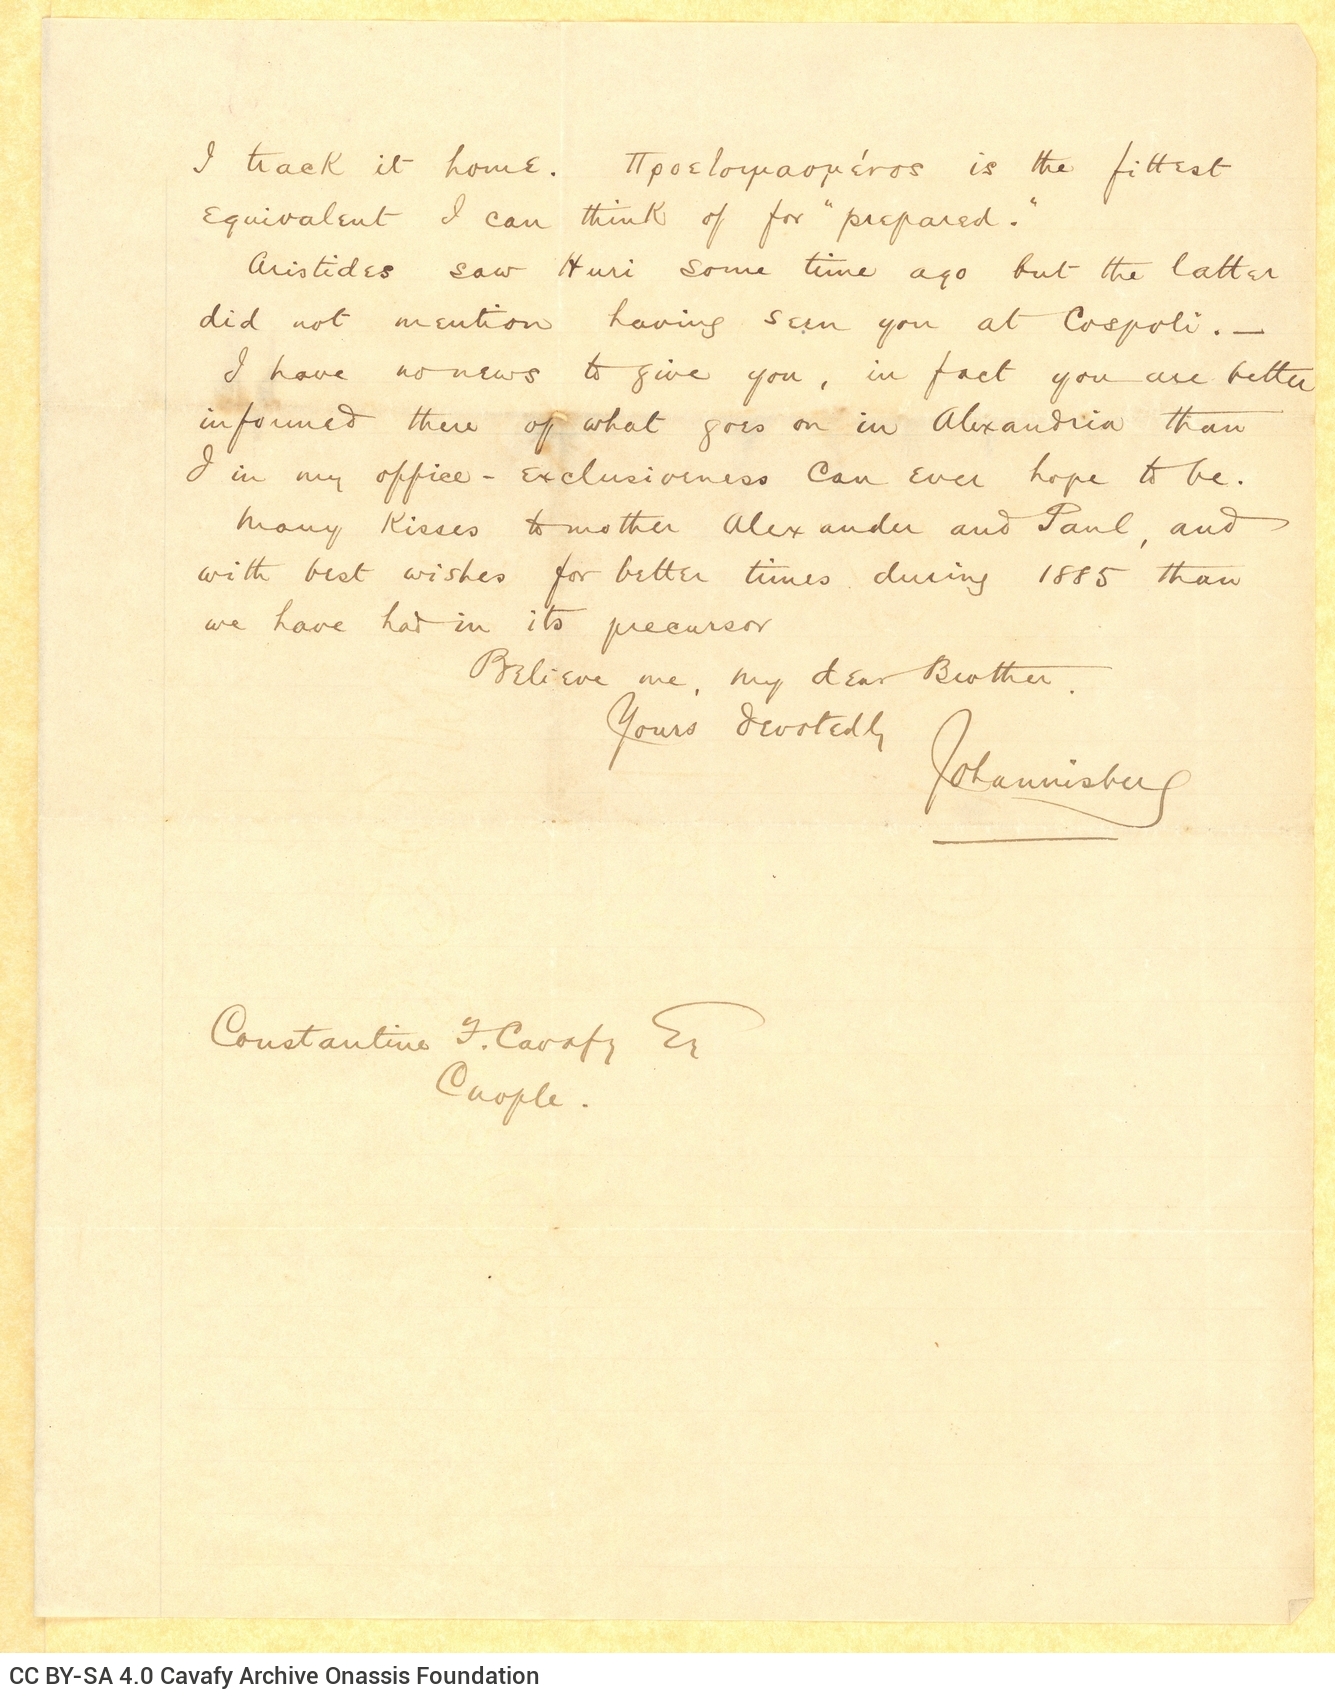 I track it home. Προετοιμασμένος is the fittest
equivalent I can think of for "prepared."
Aristides saw Huri some time ago but the latter
did not mention having seen you at Cospoli. —
I have no news to give you, in fact you are better
informed there of what goes on in Alexandria than
I in my office - exclusiveness can ever hope to be.
Many kisses to mother Alexander and Paul, and
with best wishes for better times during 1885 than
we have had in its precursor
Believe me, my dear Brother.
Yours devotedly
Johannisberg
Constantine F. Cavafy Eq
Cnople.
CC BY-SA 4.0 Cavafy Archive Onassis Foundation